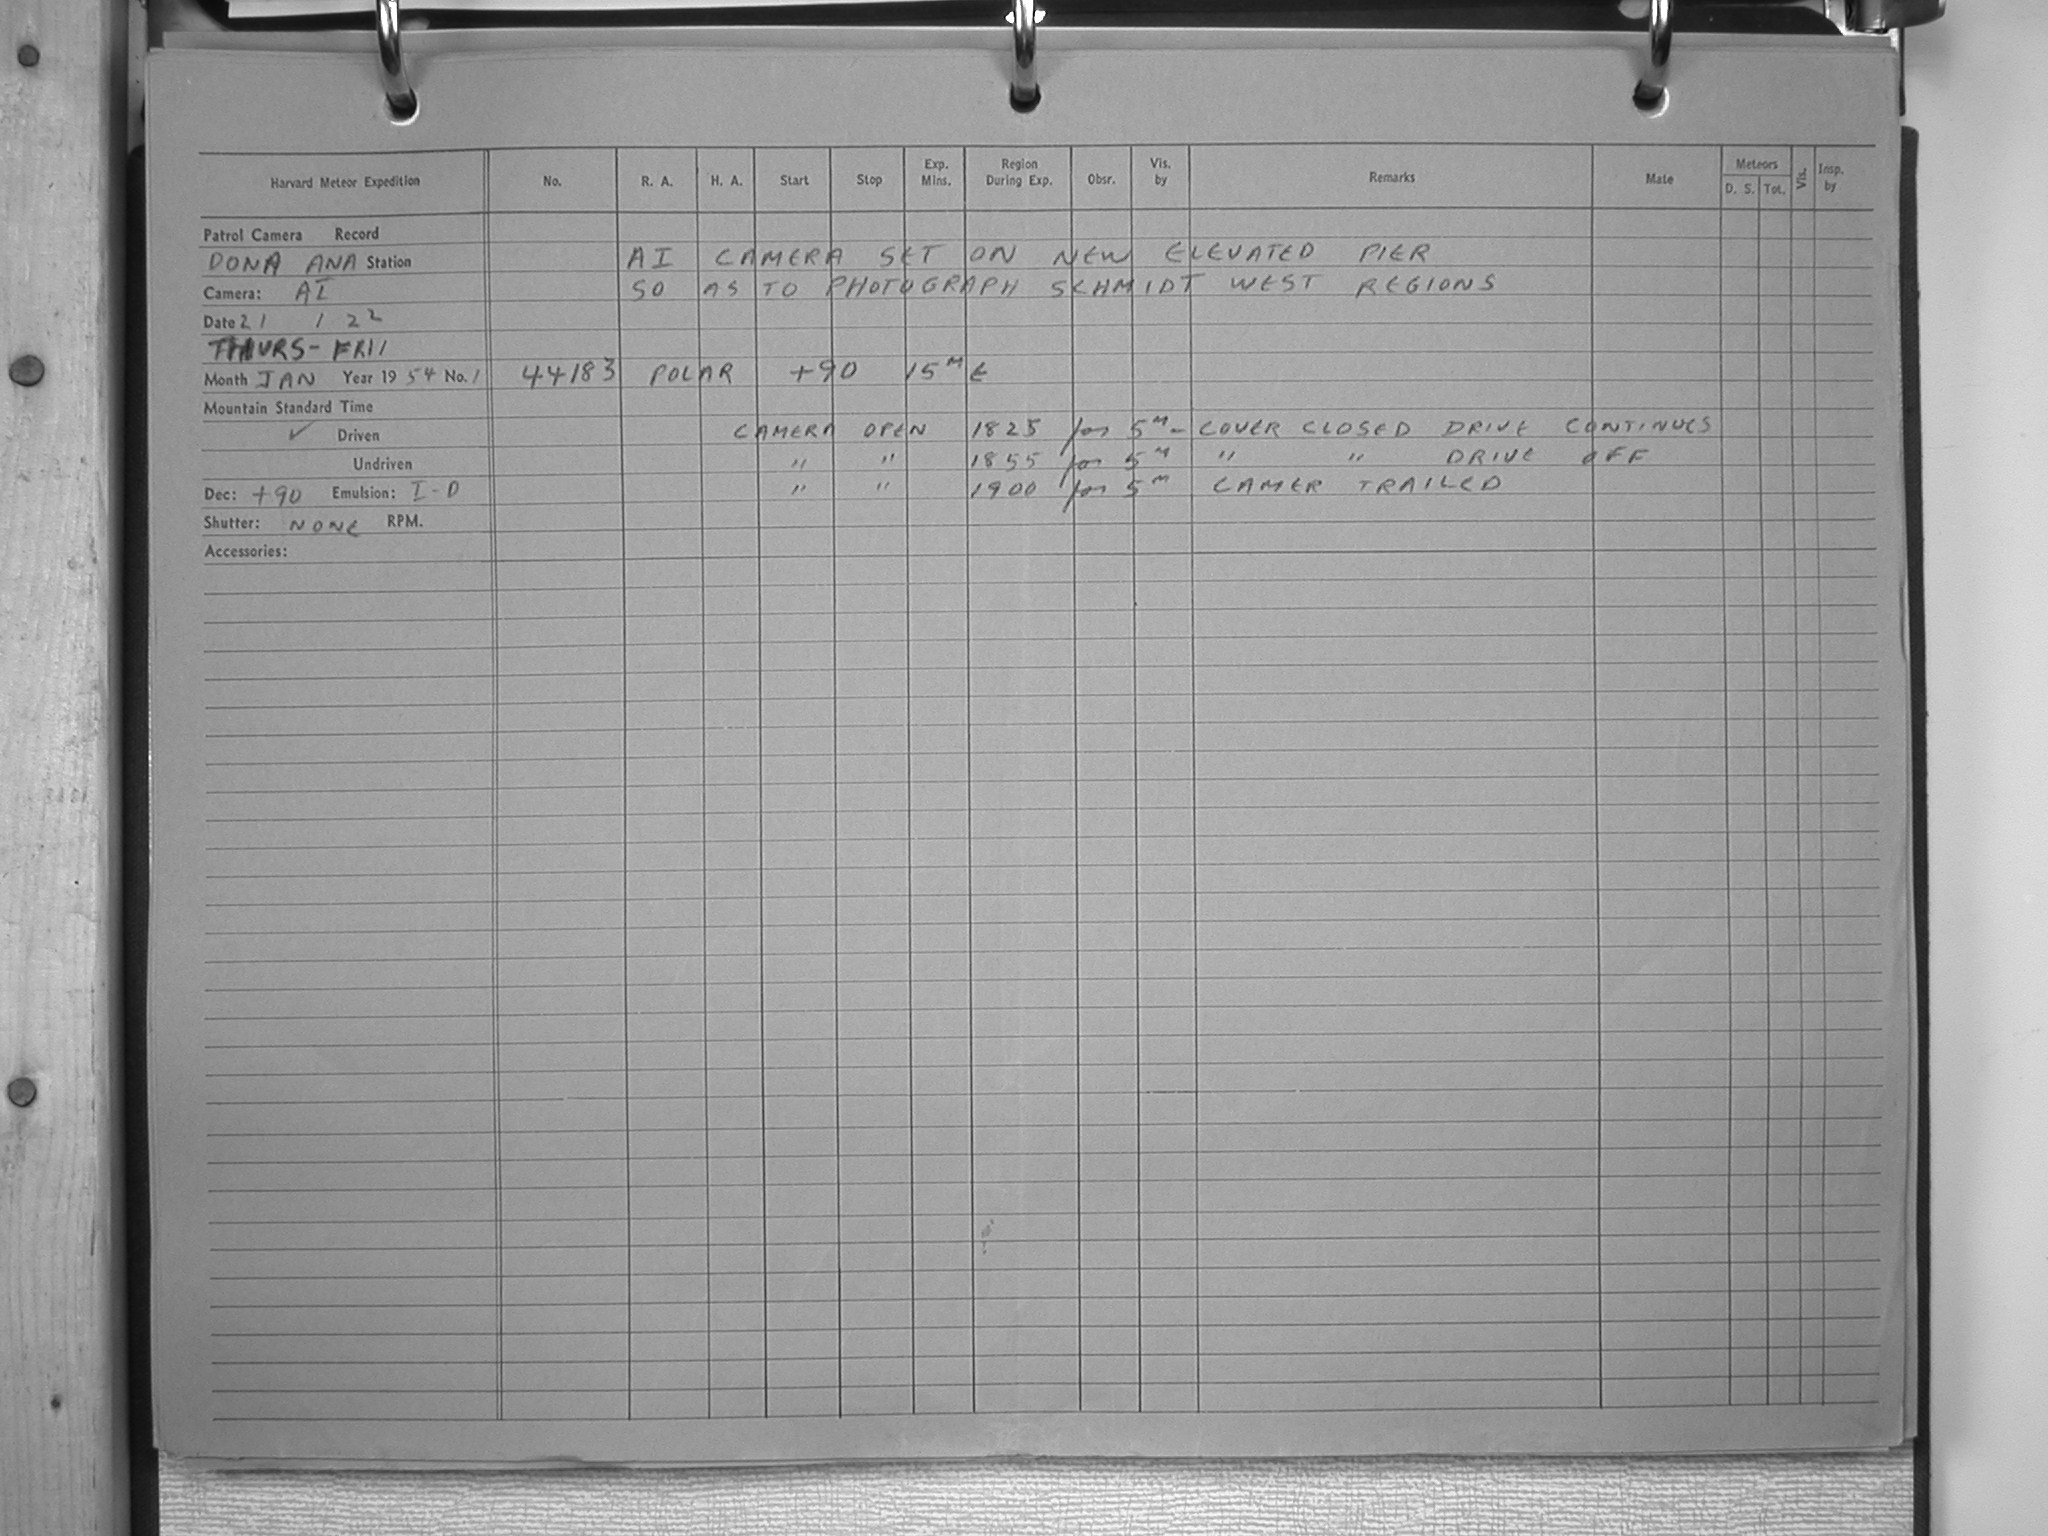 Harvard Meteor Expedition No. R. A. H. A. Start Stop Exp. Mins. Region During Exp. Obsr. Vis. by Remarks Mate Meteors D. S. Tot. Vis. Insp. by
Patrol Camera Record
DONA ANA Station AI CAMERA SET ON NEW ELEVATED PIER
Camera: AI SO AS TO PHOTOGRAPH SCHMIDT WEST REGIONS
Date 21 / 22
THURS - FRI
Month JAN Year 1954 No. 1 44183 POLAR +90 15ᴹ E
Mountain Standard Time
✓ Driven CAMERA OPEN 1825 for 5ᴹ - COVER CLOSED DRIVE CONTINUES
Undriven " " 1855 for 5ᴹ " " DRIVE OFF
Dec: +90 Emulsion: I-D " " 1900 for 5ᴹ CAMER TRAILED
Shutter: NONE RPM.
Accessories: